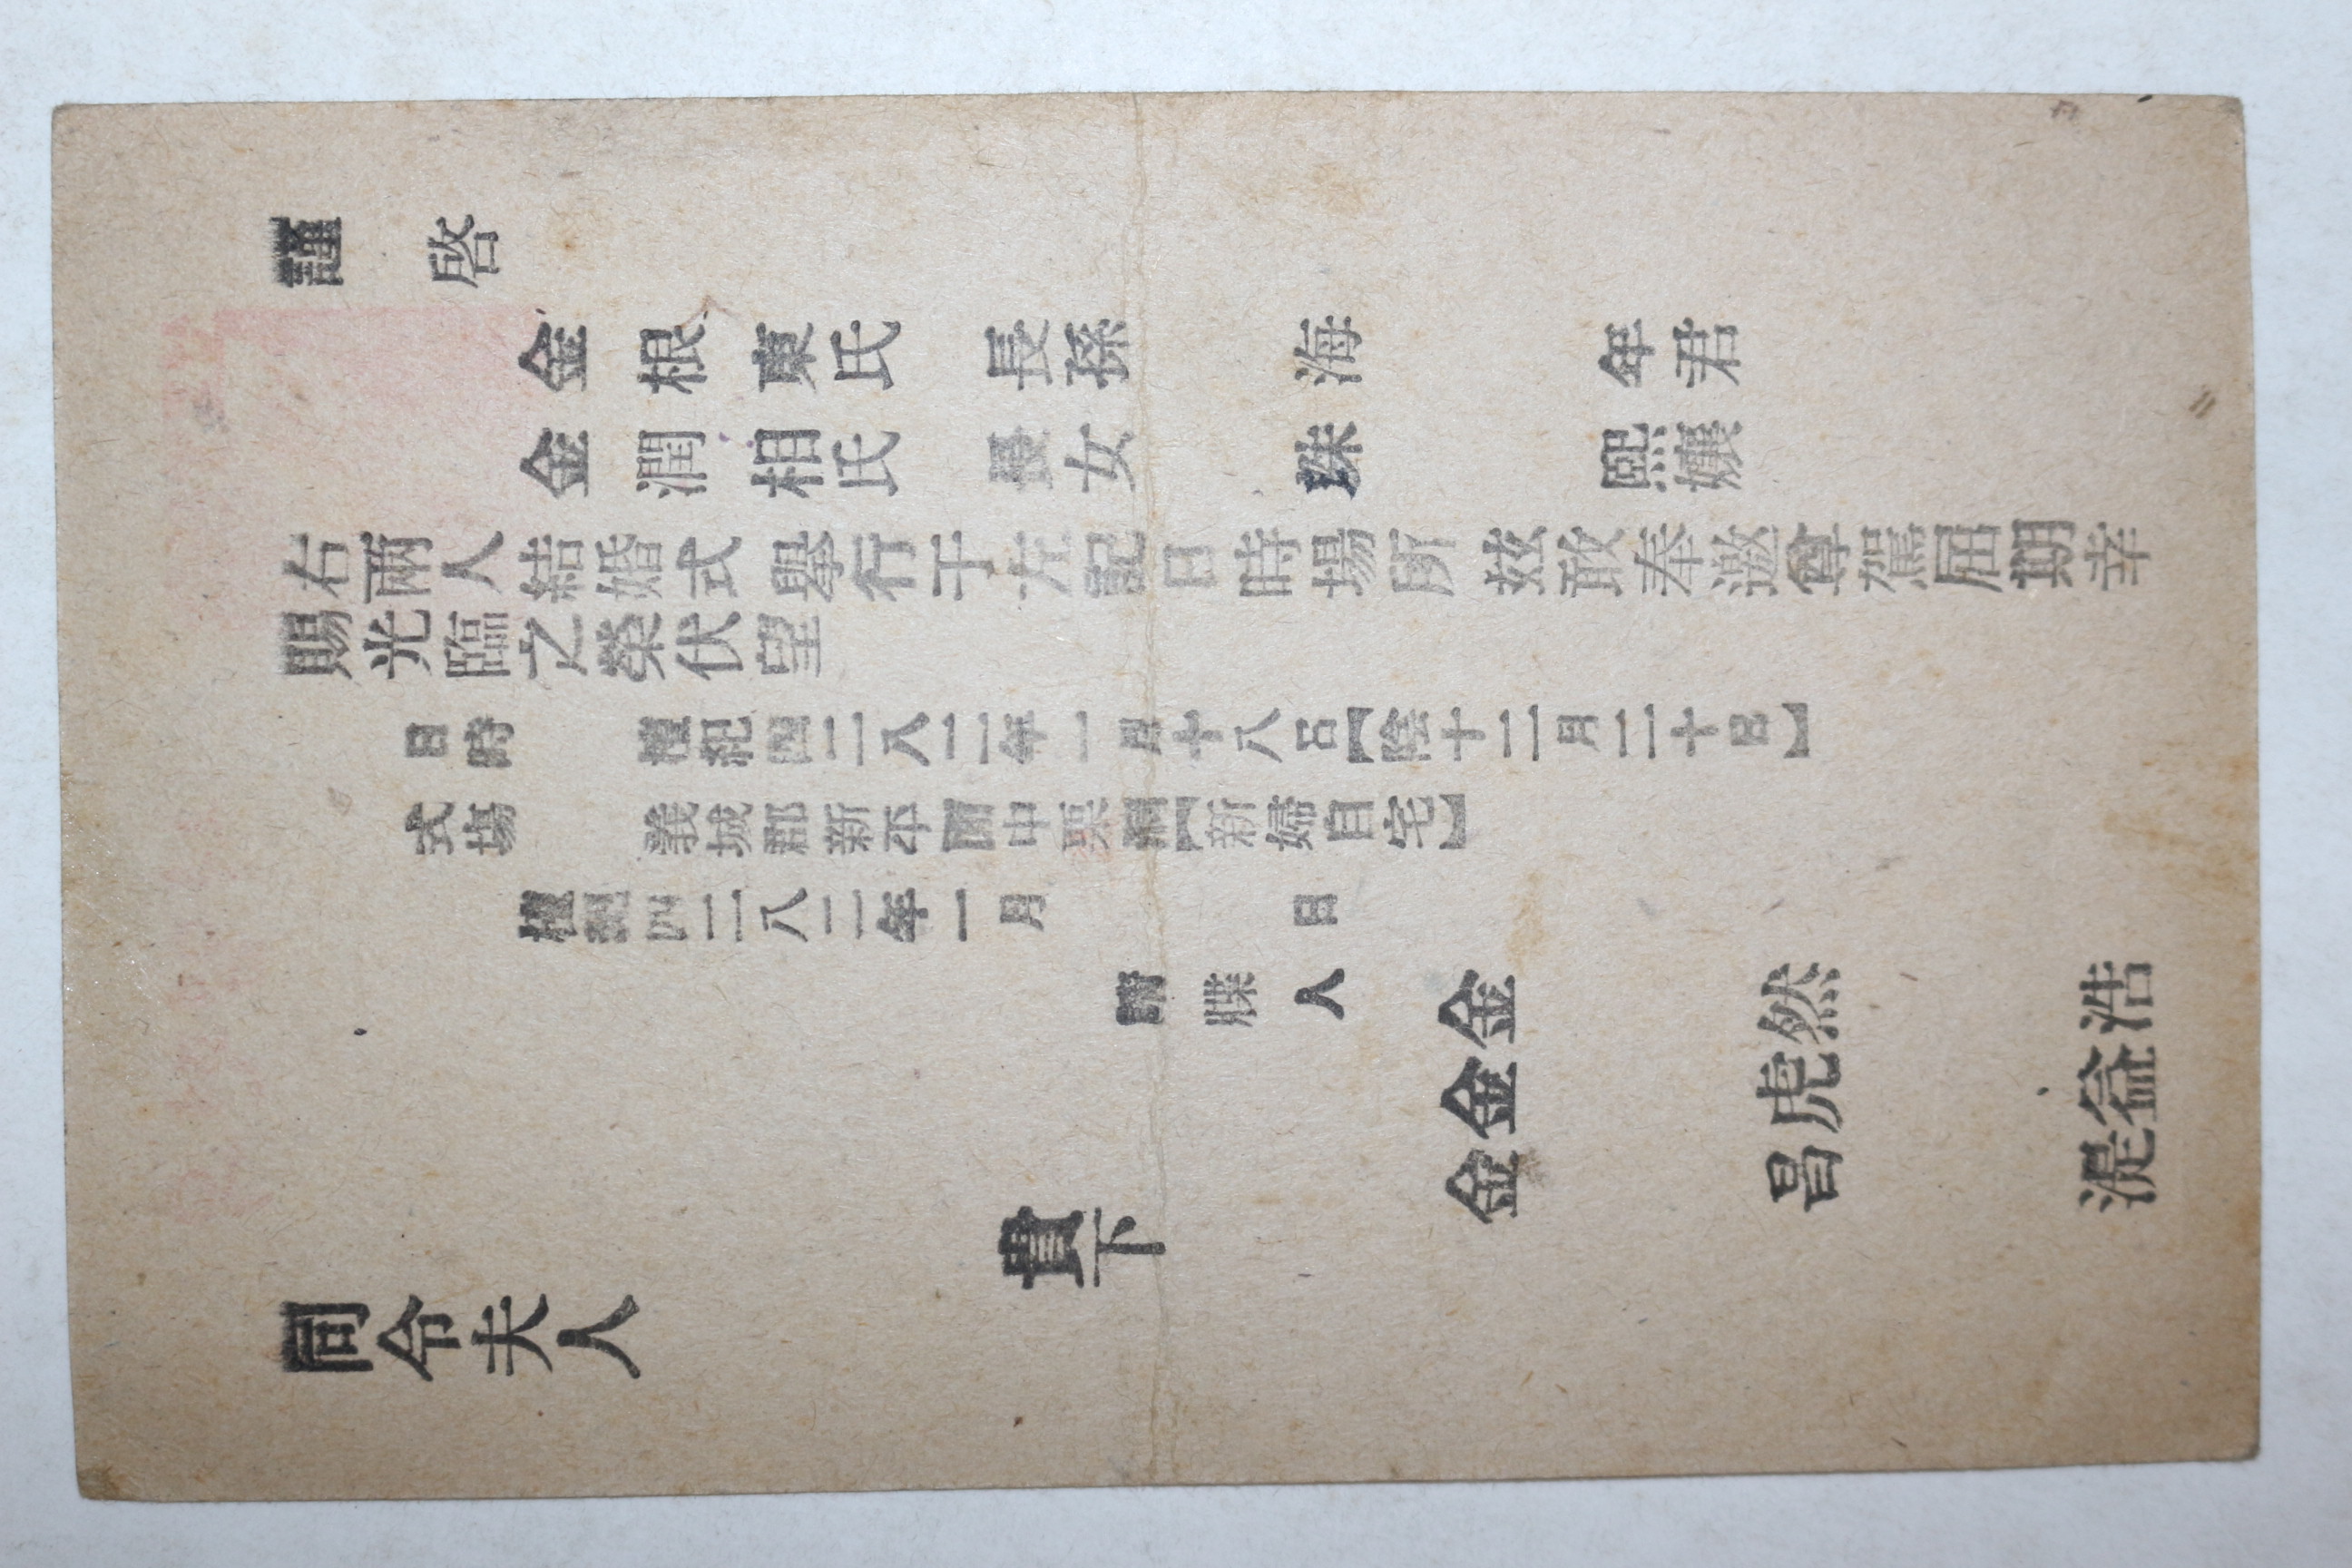 謹啓
金根東氏 長孫 海年君
金潤相氏 長女 珠熙孃
右兩人結婚式擧行于左記日時場所 玆敢奉邀尊駕屆期幸
賜光臨之榮伏望
日時 檀紀四二八二年一月十八日【陰十二月二十日】
式場 義城郡新平面中栗洞【新婦自宅】
檀紀四二八二年一月 日
請牒人 金然浩
金虎益
金昌湜
貴下
同令夫人